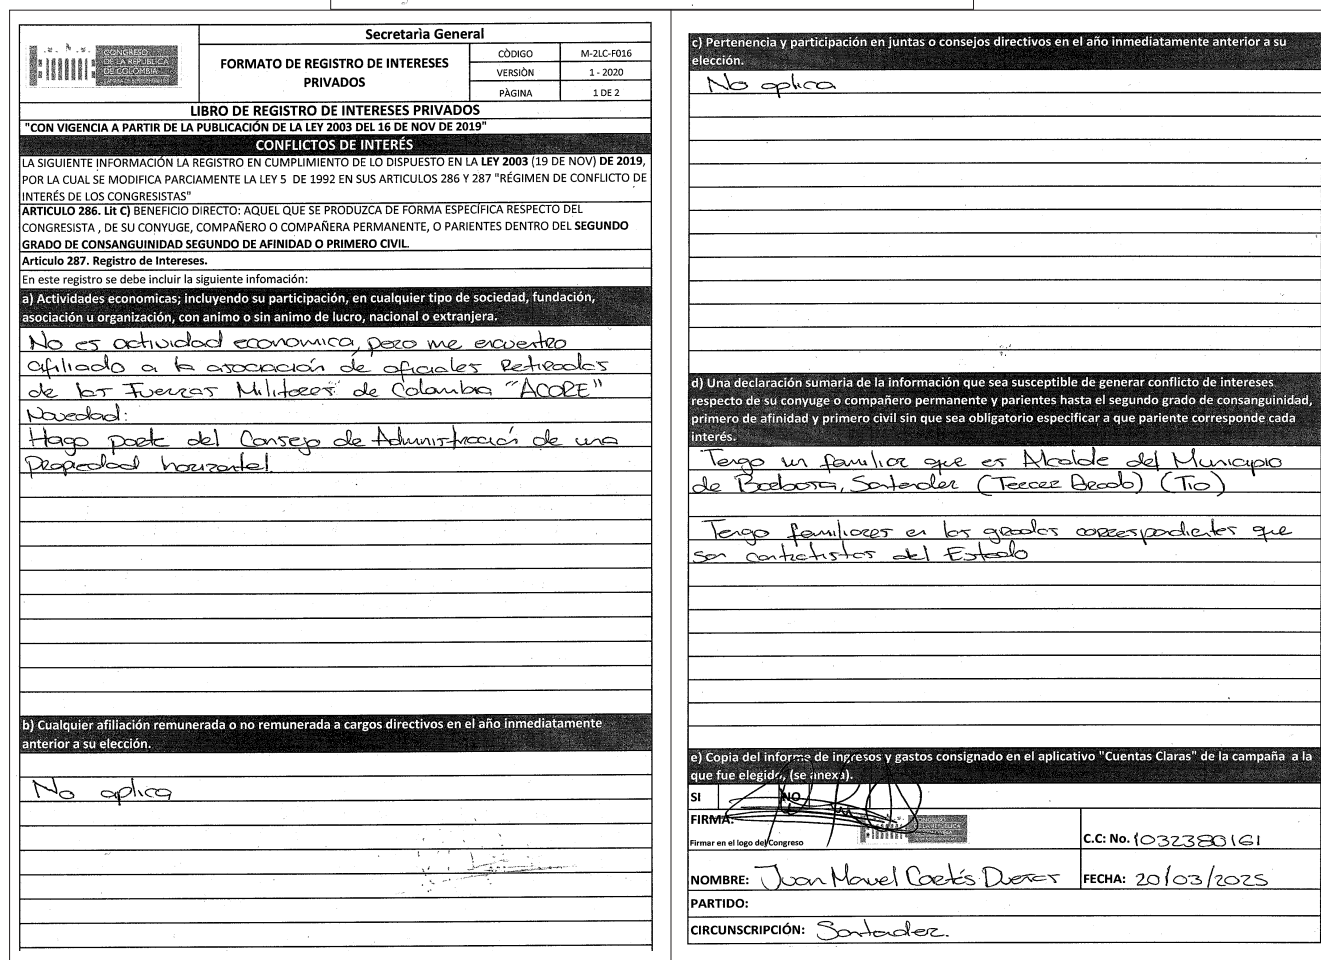 CONGRESO
DE LA REPÚBLICA
DE COLOMBIA
Secretarìa General
FORMATO DE REGISTRO DE INTERESES
PRIVADOS
CÒDIGO M-2LC-F016
VERSIÒN 1 - 2020
PÀGINA 1 DE 2
LIBRO DE REGISTRO DE INTERESES PRIVADOS
"CON VIGENCIA A PARTIR DE LA PUBLICACIÓN DE LA LEY 2003 DEL 16 DE NOV DE 2019"
CONFLICTOS DE INTERÉS
LA SIGUIENTE INFORMACIÓN LA REGISTRO EN CUMPLIMIENTO DE LO DISPUESTO EN LA LEY 2003 (19 DE NOV) DE 2019,
POR LA CUAL SE MODIFICA PARCIAMENTE LA LEY 5 DE 1992 EN SUS ARTICULOS 286 Y 287 "RÉGIMEN DE CONFLICTO DE
INTERÉS DE LOS CONGRESISTAS"
ARTICULO 286. Lit C) BENEFICIO DIRECTO: AQUEL QUE SE PRODUZCA DE FORMA ESPECÍFICA RESPECTO DEL
CONGRESISTA , DE SU CONYUGE, COMPAÑERO O COMPAÑERA PERMANENTE, O PARIENTES DENTRO DEL SEGUNDO
GRADO DE CONSANGUINIDAD SEGUNDO DE AFINIDAD O PRIMERO CIVIL.
Articulo 287. Registro de Intereses.
En este registro se debe incluir la siguiente infomación:
a) Actividades economicas; incluyendo su participación, en cualquier tipo de sociedad, fundación,
asociación u organización, con animo o sin animo de lucro, nacional o extranjera.
No es actividad economica, pero me encuentro
afiliado a la asociación de oficiales Retirados
de las Fuerzas Militares de Colombia "ACORE"
Novedad:
Hago parte del Consejo de Administración de una
propiedad horizontal
b) Cualquier afiliación remunerada o no remunerada a cargos directivos en el año inmediatamente
anterior a su elección.
No aplica
c) Pertenencia y participación en juntas o consejos directivos en el año inmediatamente anterior a su
elección.
No aplica
d) Una declaración sumaria de la información que sea susceptible de generar conflicto de intereses
respecto de su conyuge o compañero permanente y parientes hasta el segundo grado de consanguinidad,
primero de afinidad y primero civil sin que sea obligatorio especificar a que pariente corresponde cada
interés.
Tengo un familiar que es Alcalde del Municipio
de Barbosa, Santander (Tercer Grado) (Tio)
Tengo familiares en los grados correspondientes que
son contratistas del Estado
e) Copia del informe de ingresos y gastos consignado en el aplicativo "Cuentas Claras" de la campaña a la
que fue elegido, (se anexa).
SI NO
FIRMA:
Firmar en el logo del Congreso
C.C: No. 1032380161
NOMBRE: Juan Manuel Cortés Dueñas
FECHA: 20/03/2025
PARTIDO:
CIRCUNSCRIPCIÓN: Santander.